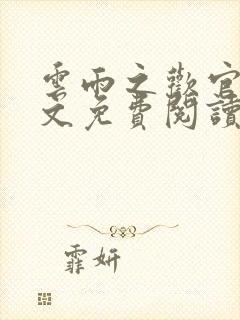 雲雨之歡官
文免費閱讀
霏妍